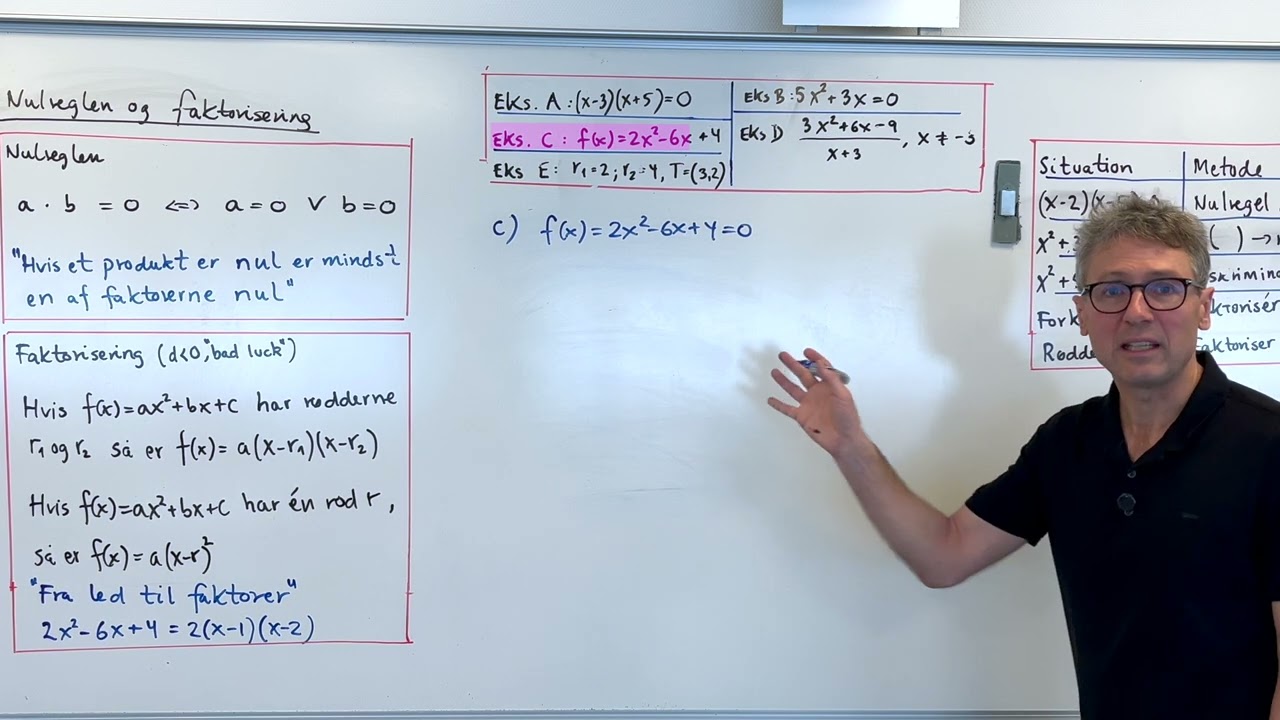 Nulreglen og faktorisering
Nulreglen
a · b = 0 <=> a = 0 V b = 0
"Hvis et produkt er nul er mindst
en af faktorerne nul"
Faktorisering (d<0, "bad luck")
Hvis f(x)=ax²+bx+c har rødderne
r₁ og r₂ så er f(x)= a(x-r₁)(x-r₂)
Hvis f(x)=ax²+bx+c har én rod r,
så er f(x)= a(x-r)²
"Fra led til faktorer"
2x²-6x+4 = 2(x-1)(x-2)
Eks. A : (x-3)(x+5)=0
Eks B : 5x²+3x=0
Eks. C : f(x)=2x²-6x+4
Eks D (3x²+6x-9)/(x+3), x ≠ -3
Eks E: r₁=2; r₂=4, T=(3,2)
c) f(x)=2x²-6x+4=0
Situation Metode
Nulregel
( )
Rødde faktoriser